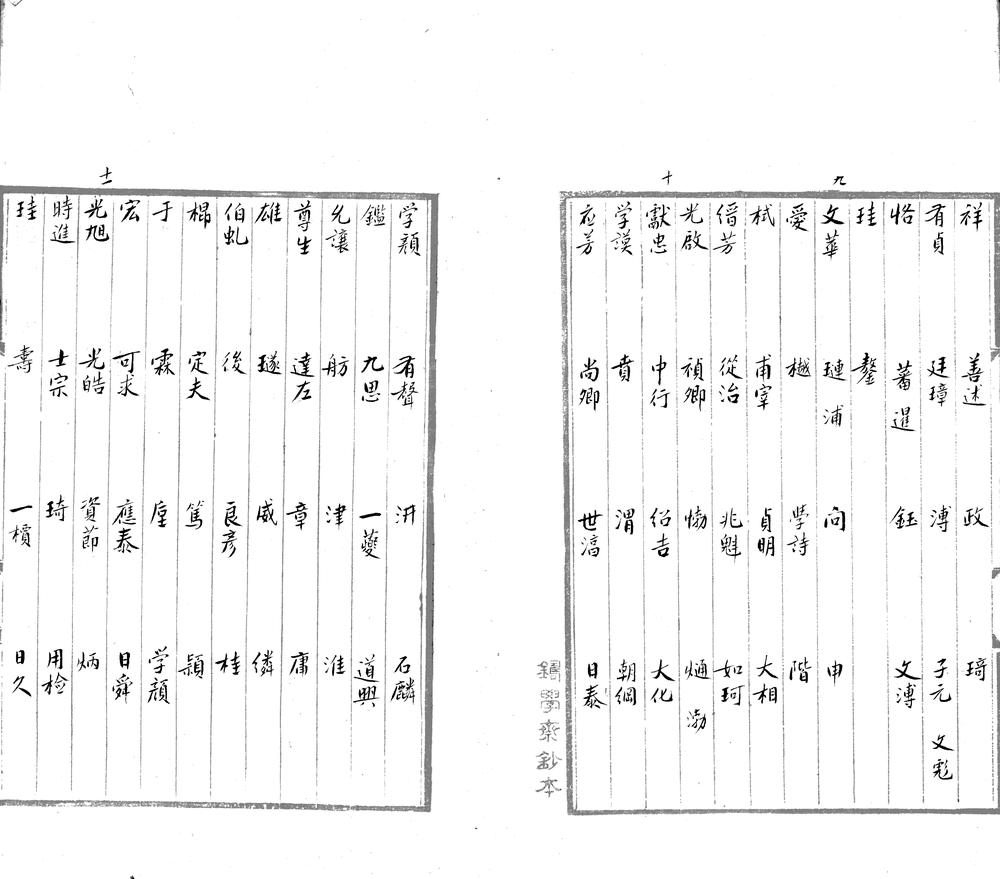 九
祥 善述 政 琦
有貞 廷璋 溥 子元 文彪
恪 蕃 暹 鈺 文溥
珪 鏊
文華 璉 浦 向 申
愛 樾 学詩 階
栻 甫宰 貞明 大相
縉芳 從治 兆魁 如珂
十
光啟 禎卿 煬 渤
獻忠 中行 紹吉 大化
学謨 賁 渭 朝綱
應芳 尚卿 世滈 日泰
鑄學齋鈔本
学顏 有聲 汧 石麟
鑑 九思 一夔 道興
允讓 舫 津 淮
尊生 達左 章 庸
雄 璲 威 繗
伯虬 後 良彥 桂
榥 定夫 篤 頴
于 霖 垕 学顏
宏 可求 應泰 日舜
十一
光旭 光皓 資節 炳
時進 士宗 琦 用检
珪 壽 一櫝 日久